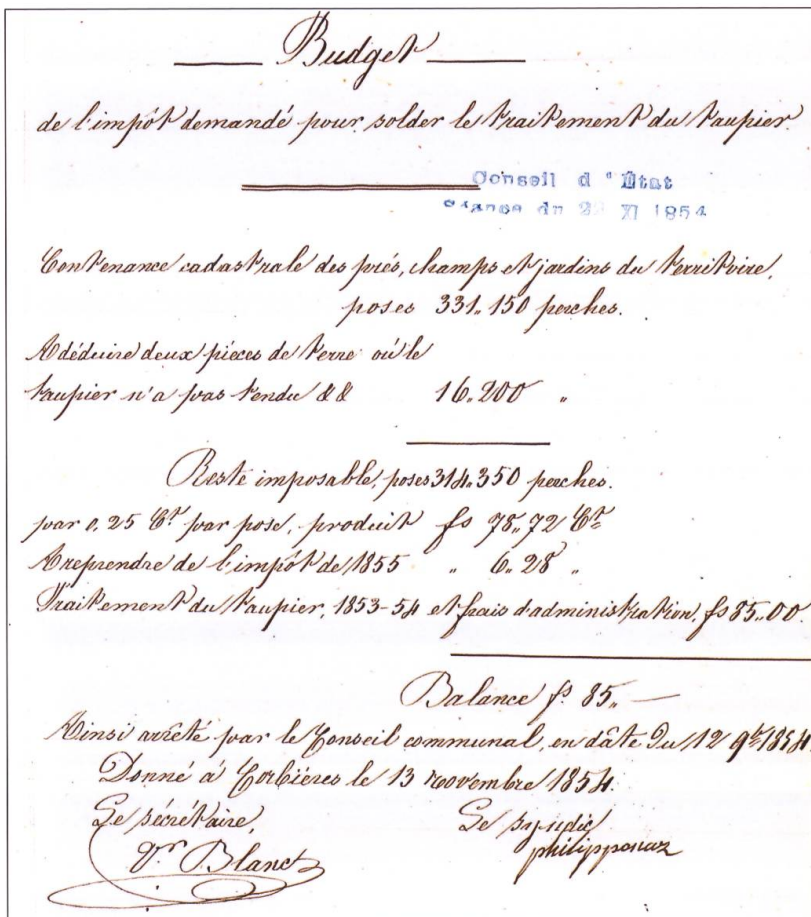 Budget
de l'impôt demandé pour solder le traitement du taupier.
Conseil d'État
Séance du 22 XI 1854
Contenance cadastrale des prés, champs et jardins du territoire,
poses 331„150 perches.
A déduire deux pièces de terre où le
taupier n'a pas tendu && 16„200 „
Reste imposable, poses 314„350 perches.
par 0,25 Ct par pose, produit fs 78„72 Ct
A reprendre de l'impôt de 1855 „ 6„28 „
Traitement du taupier, 1853-54 et frais d'administration, fs 85„00.
Balance fs 85„—
Ainsi arrêté par le Conseil communal, en dâte du 12 9bre 1854.
Donné à Corbières le 13 novembre 1854.
Le sécrétaire, Le syndic
Blanc philipponaz